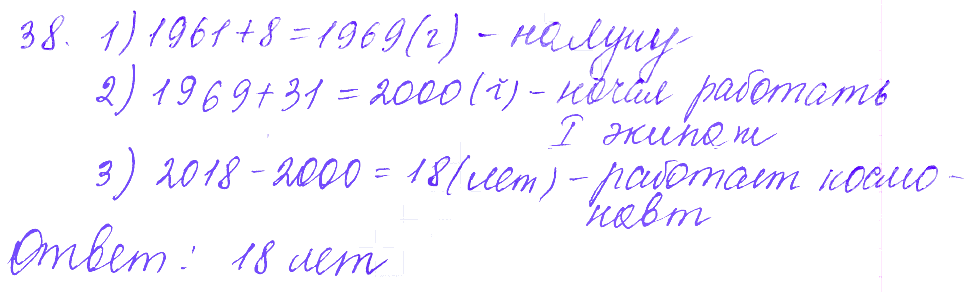 38. 1) 1961+8=1969(г) - на луну
2) 1969+31=2000(г) - начал работать
I экипаж
3) 2018-2000=18(лет) - работает космо-
навт
Ответ: 18 лет